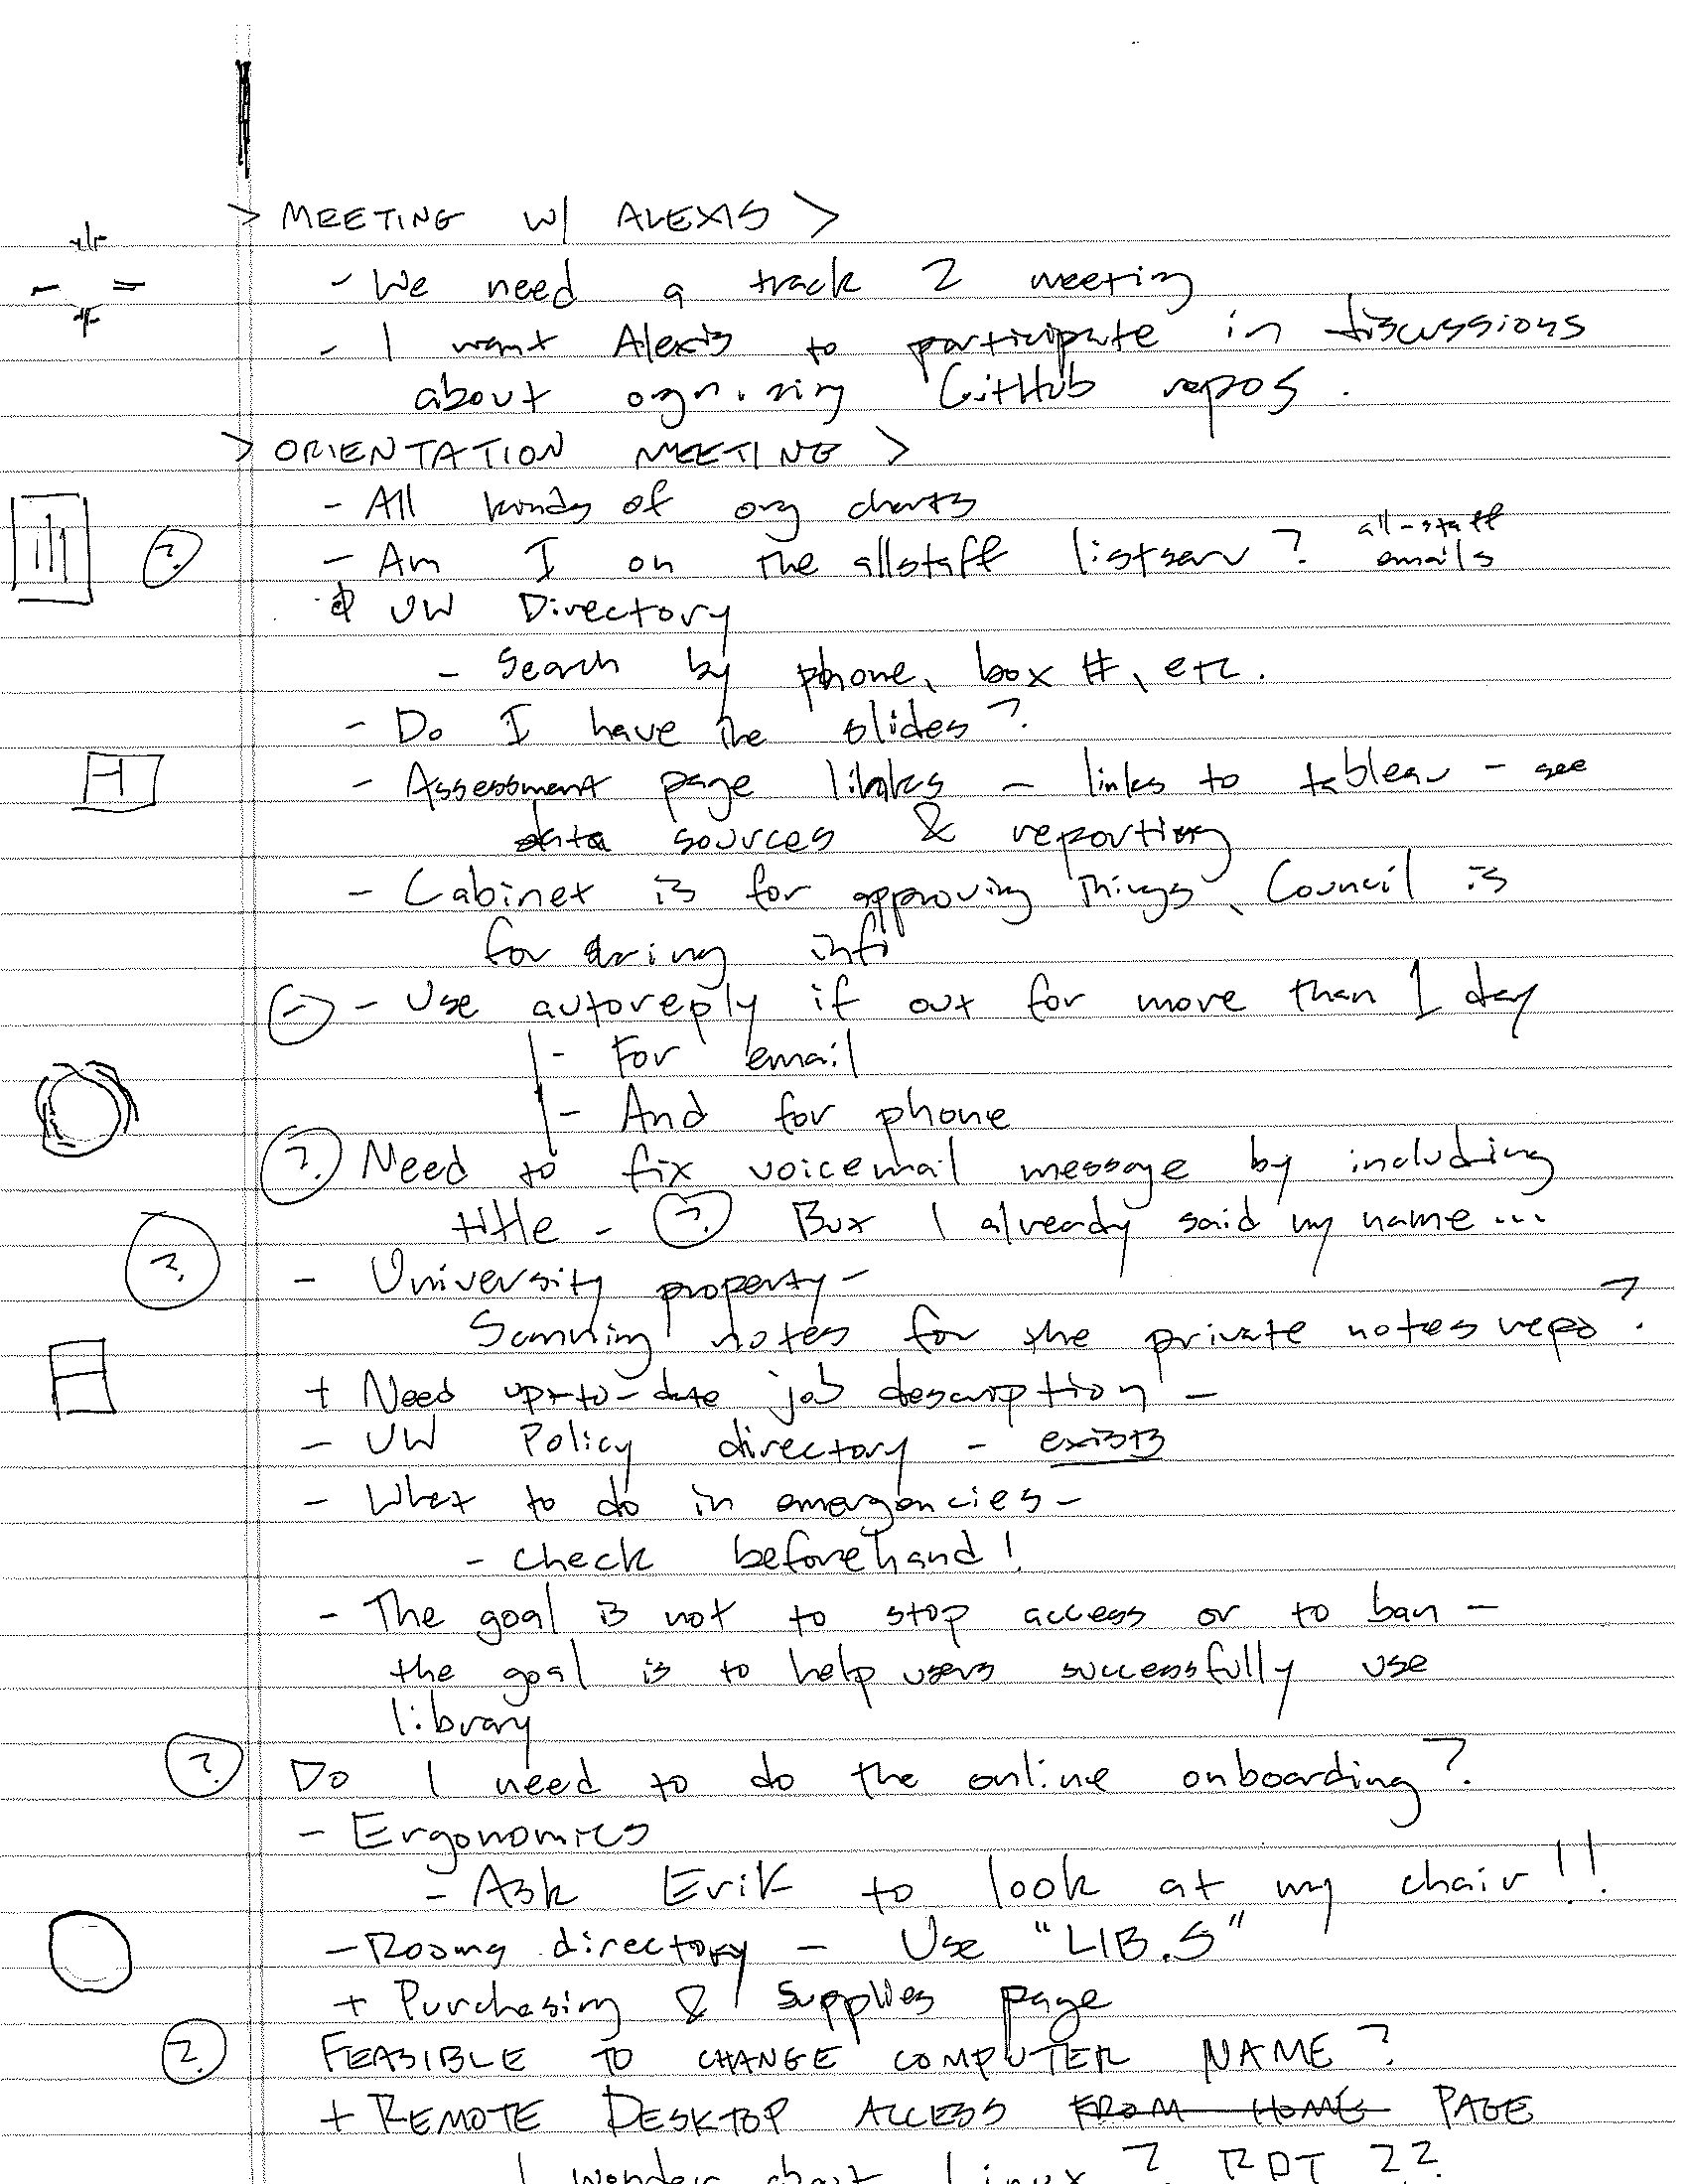 > MEETING W/ ALEXIS >
- We need a track 2 meeting
- I want Alexis to participate in discussions
about orgnizing GitHub repos.
> ORIENTATION MEETING >
- All kinds of org charts
- Am I on the allstaff listserv? all-staff emails
UW Directory
- Search by phone, box #, etc.
- Do I have the slides?
- Assessment page links - links to tableau - see
data sources & reporting
- Cabinet is for approving things, Council is
for info
- Use autoreply if out for more than 1 day
- For email
- And for phone
? Need to fix voicemail message by including
title - ? But I already said my name...
? - University property -
Scanning notes for the private notes repo?
+ Need up-to-date job description -
- UW Policy directory - exists
- What to do in emergencies -
- check beforehand!
- The goal is not to stop access or to ban -
the goal is to help users successfully use
library
? Do I need to do the online onboarding?
- Ergonomics
- Ask Erik to look at my chair!!
- Rooms directory - Use "LIB.S"
+ Purchasing & Supplies page
? FEASIBLE TO CHANGE COMPUTER NAME?
+ REMOTE DESKTOP ACCESS FROM HOME PAGE
I wonder about Linux? RDT ??